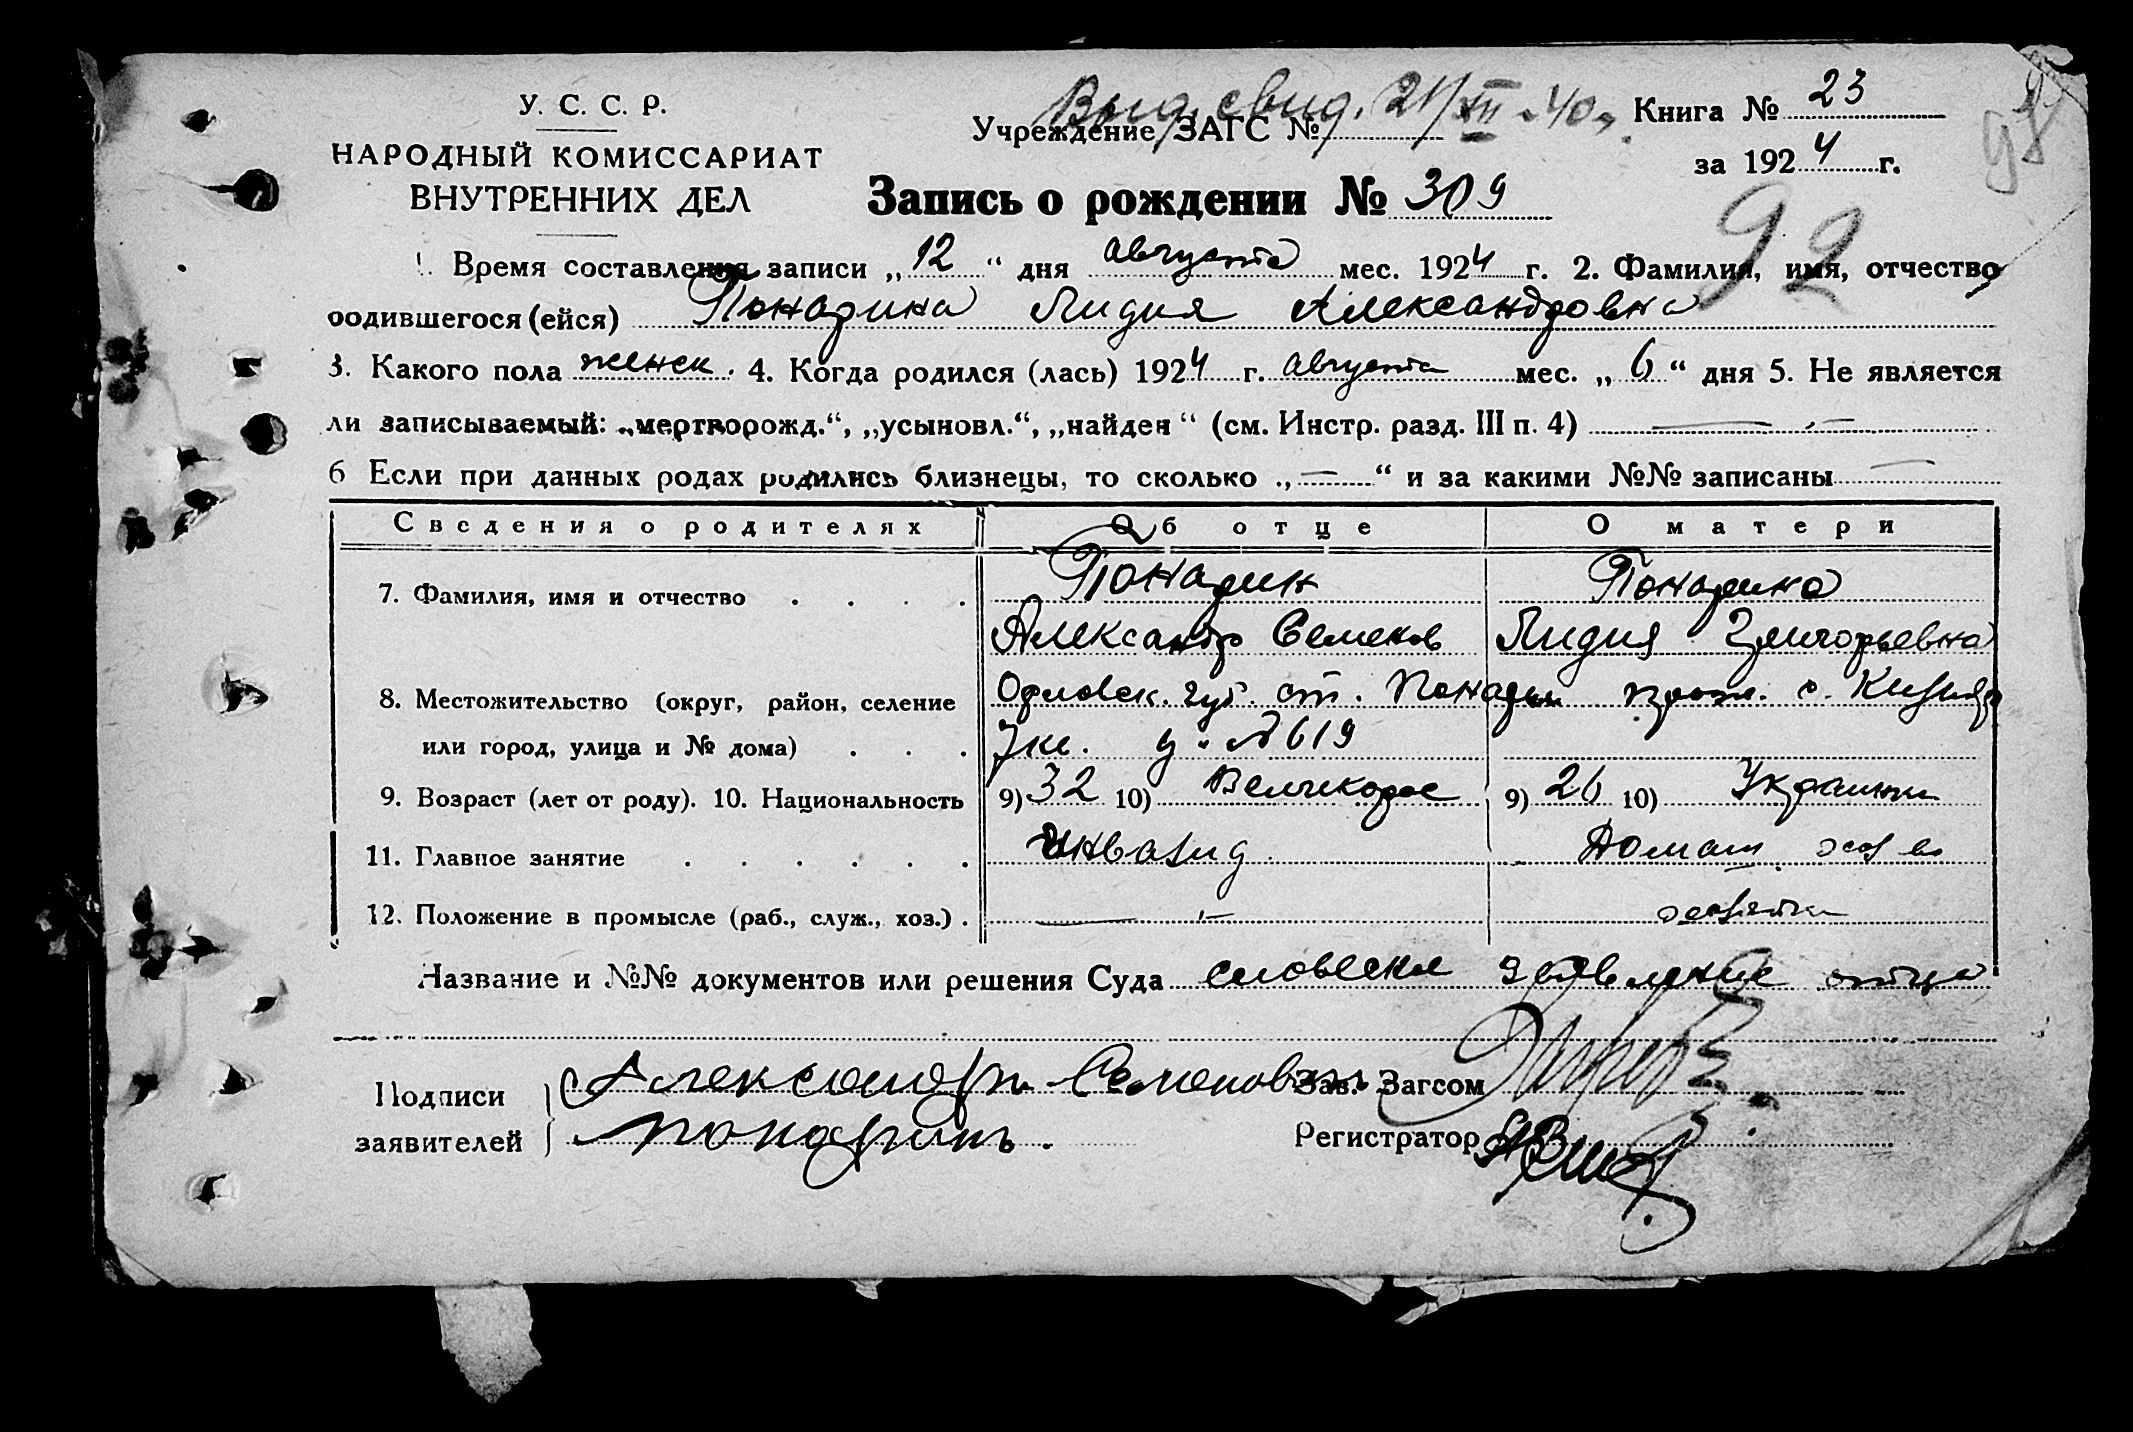 Выд. свид. 21/XII-40 г.
У. С. С. Р.
Учреждение ЗАГС №
Книга № 23
за 1924 г.
98
НАРОДНЫЙ КОМИССАРИАТ
ВНУТРЕННИХ ДЕЛ
Запись о рождении № 309
92
1. Время составления записи „12“ дня августа мес. 1924 г. 2. Фамилия, имя, отчество
родившегося (ейся) Понарина Лидия Александровна
3. Какого пола женск. 4. Когда родился (лась) 1924 г. августа мес. „6“ дня 5. Не является
ли записываемый: „мертворожд.“, „усыновл.“, „найден“ (см. Инстр. разд. III п. 4) —
6 Если при данных родах родились близнецы, то сколько „—“ и за какими №№ записаны —
Сведения о родителях Об отце О матери
7. Фамилия, имя и отчество Понарин Понарина
Александр Семенов Лидия Григорьевна
8. Местожительство (округ, район, селение Орловск. губ. ст. Понары прож. с.
или город, улица и № дома) д. № 619
9. Возраст (лет от роду). 10. Национальность 9) 32 10) Великорос 9) 26 10) Украинк
11. Главное занятие инвалид Домаш. хоз во
12. Положение в промысле (раб., служ., хоз.) — хозяйка
Название и №№ документов или решения Суда словеское заявление отца
Подписи
заявителей
Александръ Семеновичъ
Понаринъ.
Зав. Загсом
Регистратор